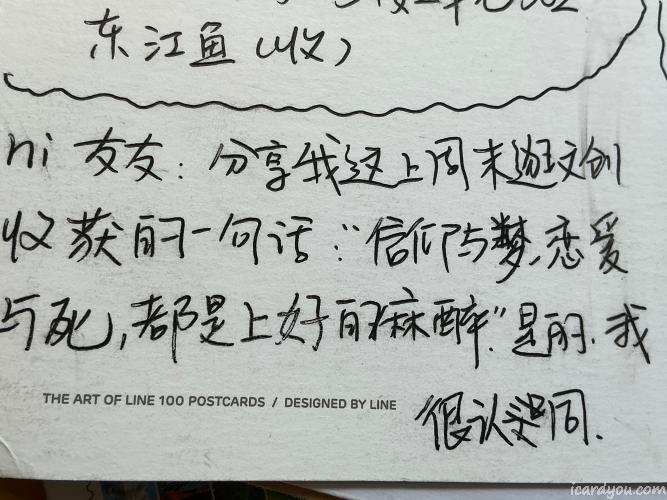 东江鱼（收）
hi 友友：分享我这上周末逛文创
收获的一句话：“信仰与梦，恋爱
与死，都是上好的麻醉。”是的，我
THE ART OF LINE 100 POSTCARDS / DESIGNED BY LINE
很认同.
icardyou.com